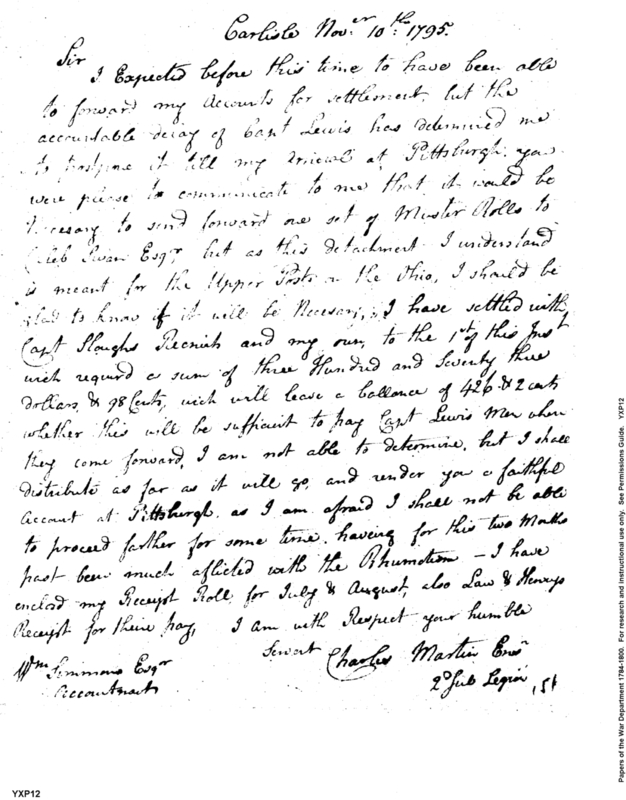 Carlisle Nov.er 10th: 1795.
Sir
I Expected before this time to have been able
to forward my Accounts for settlement, but the
accountable delay of Capt Lewis has determined me
to postpone it till my arrival at Pittsburgh. you
were please to communicate to me that it would be
Necesary to send forward one set of Muster Rolls to
Caleb Swan Esqr, but as this detachment I understand
is meant for the Upper Posts on the Ohio, I should be
glad to know if it will be Necesary, I have settled with
Capt Sloughs Recruits and my own, to the 1st of this Inst
wich requird a sum of three Hundred and Seventy three
dollars, & 98 Cents, wich will leave a ballance of 426 & 2 cents
whether this will be sufficient to pay Capt Lewis Men when
they come forward, I am not able to determine, but I shall
distribute as far as it will go, and render you a faithful
account at Pittsburgh. as I am afraid I shall not be able
to proceed farther for some time, having for this two Months
past been much aflicted with the Rhumatism – I have
enclosd my Receipt Roll, for July & August, also Law & Henrys
Receipt for their pay, I am with Respect your humble
Servant Charles Martin Ens
2d Sub Legion
Wm Simmons Esqr
Accountant
YXP12
Papers of the War Department 1784-1800. For research and instructional use only. See Permissions Guide. YXP12